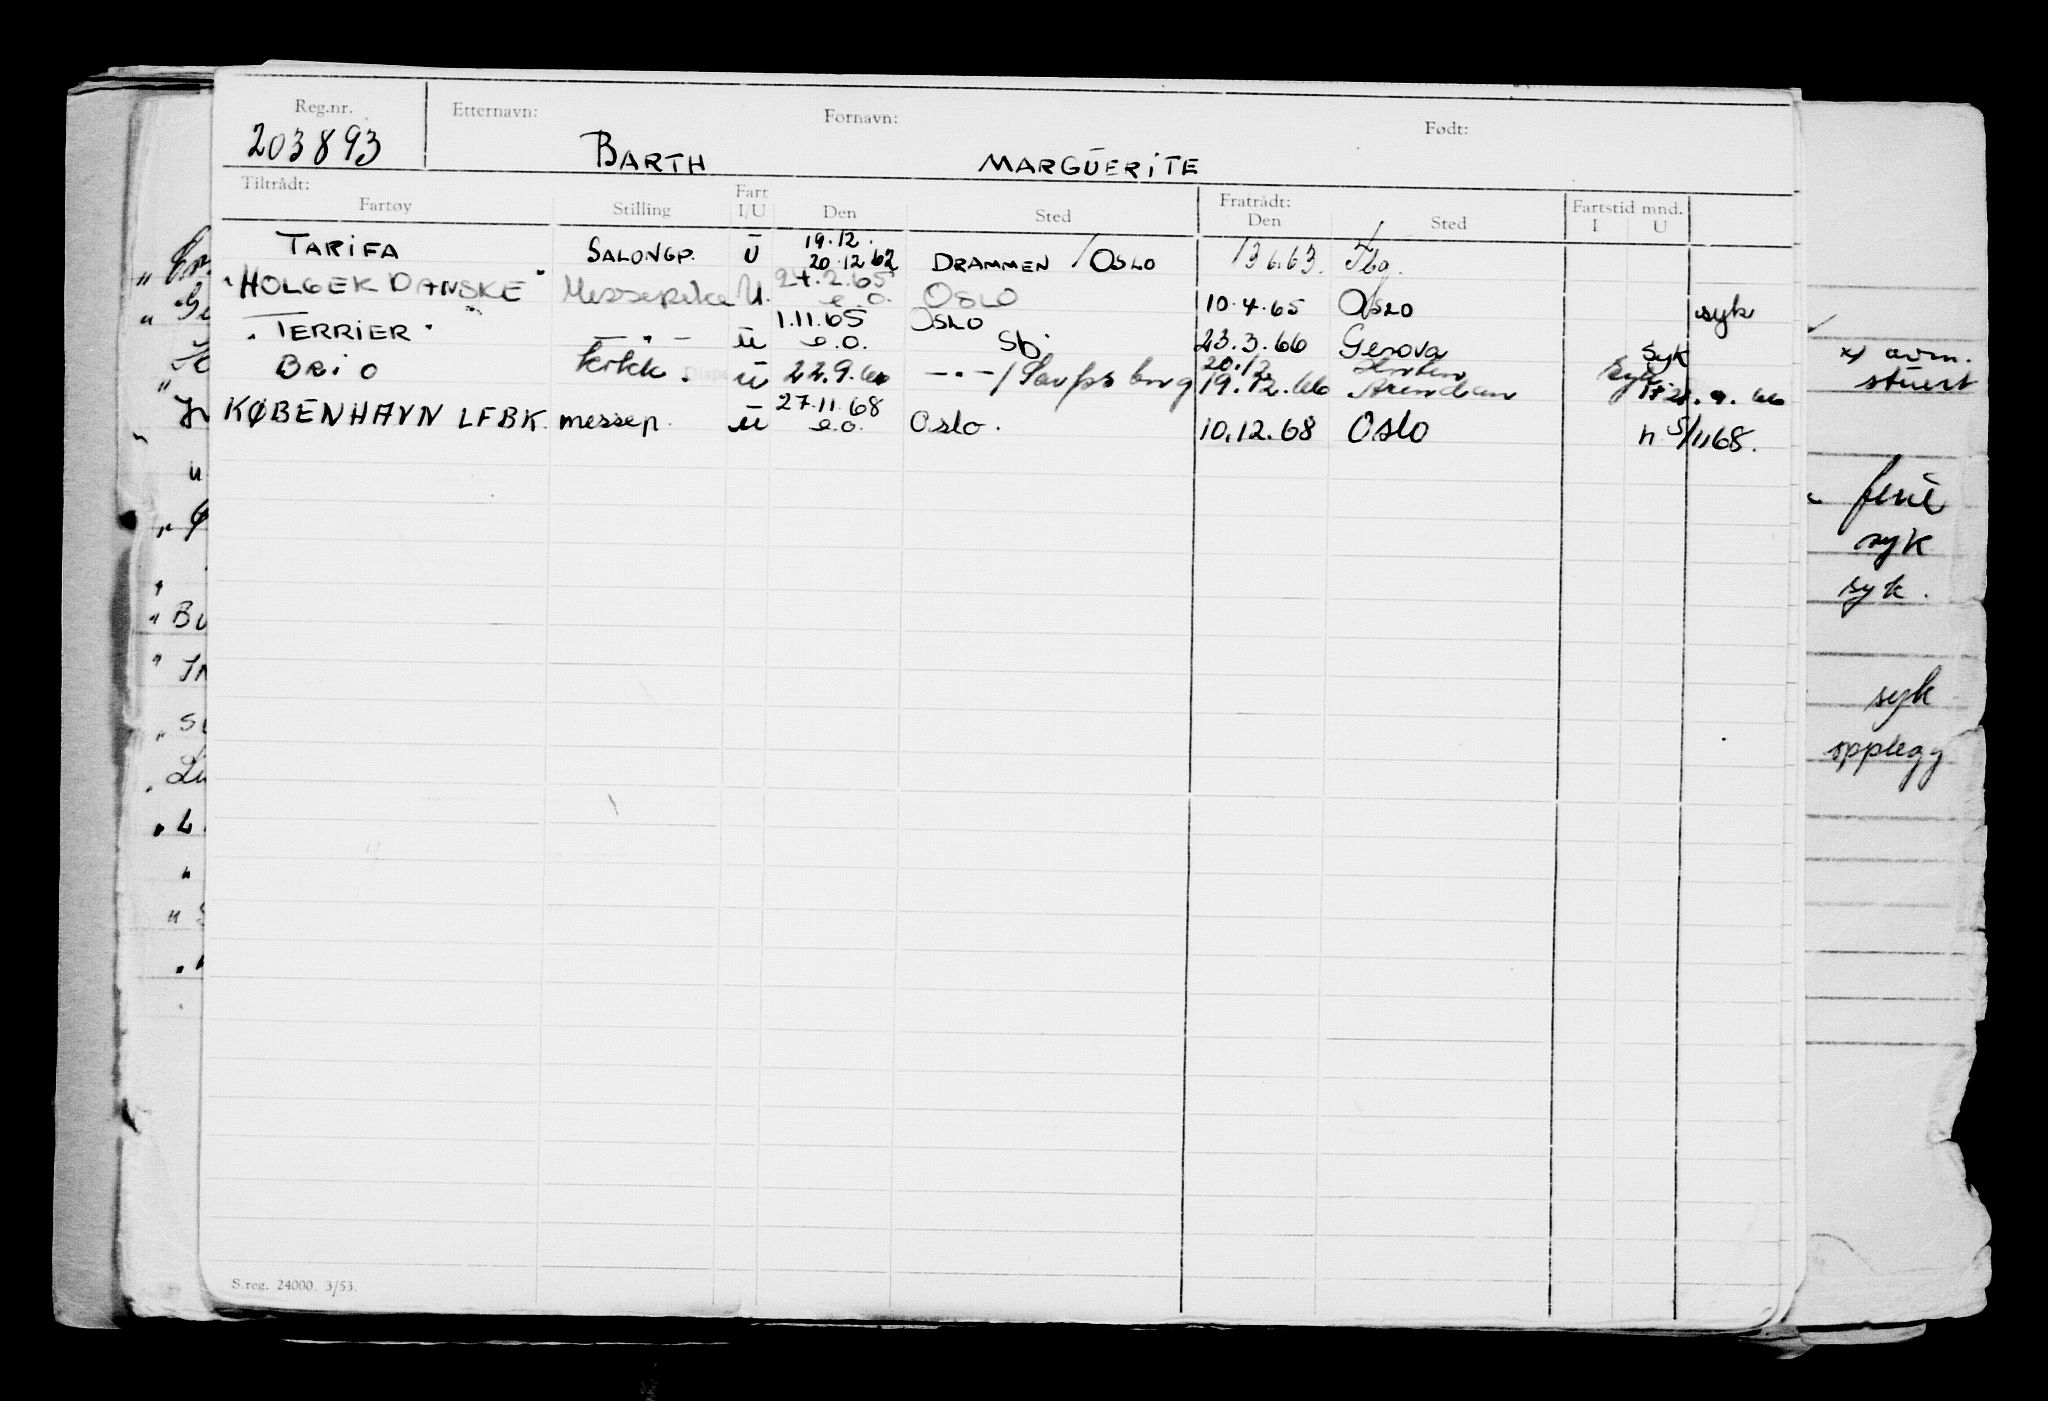 Reg.nr. Etternavn: Fornavn: Født:
203893 BARTH MARGUERITE
Tiltrådt: Fratrådt: Fartstid mnd.
Fartøy Stilling Fart I/U Den Sted Den Sted I U
TARIFA SALONGP. U 19.12. 20.12.62 DRAMMEN / OSLO 13.6.63.
"HOLGER DANSKE" Messepike U. 24.2.65 e.o. OSLO 10.4.65 OSLO syk
"TERRIER" — " — U 1.11.65 e.o. OSLO 23.3.66 Genova syk
BRIO kokk. U 22.9.66 — " — / Sarpsborg 20.12 19.12.66 syk
KØBENHAVN LFBK. messep. U 27.11.68 e.o. Oslo. 10.12.68 Oslo n 5/1168.
S.reg. 24000. 3/53.
x) avm.
stuert
syk
syk.
syk
opplegg